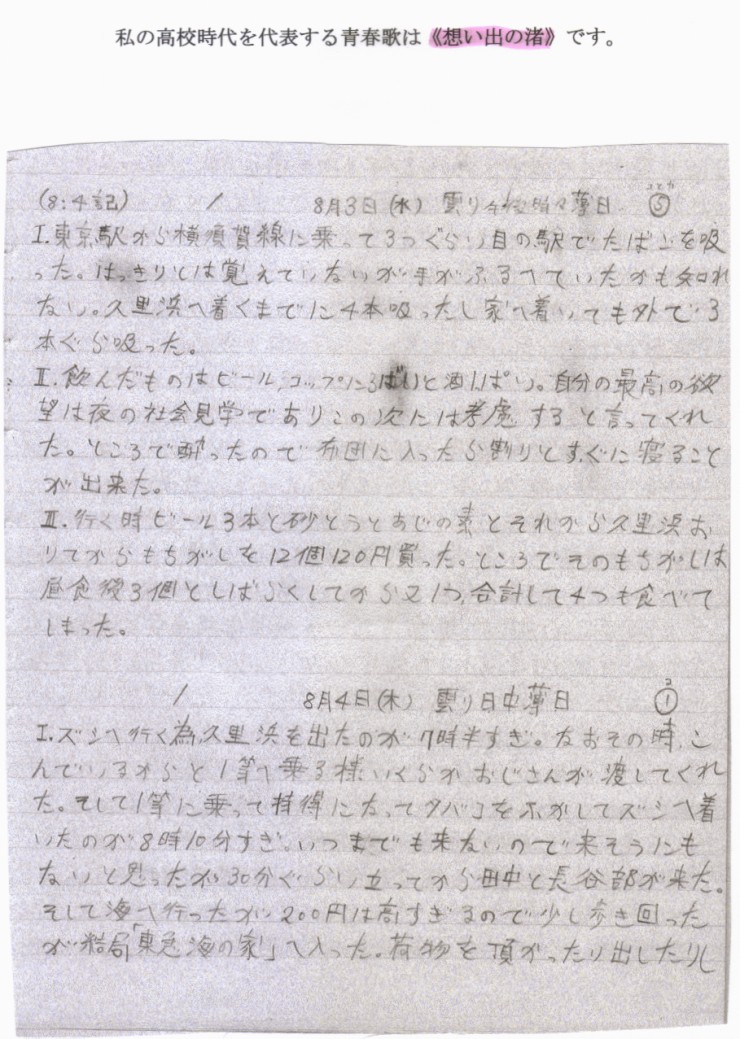 私の高校時代を代表する青春歌は《想い出の渚》です。
(8:4記) / 8月3日(水) 雲り 薄日 ⑤
I.東京駅から横須賀線に乗って3つぐらい目の駅でたばこを吸
った。はっきりとは覚えていないが手がふるへていたかも知れ
ない。久里浜へ着くまでに4本吸ったし家へ着いても外で3
本ぐら吸った。
II.飲んだものはビール,コップに3ばいと酒1ぱい。自分の最高の欲
望は夜の社会見学でありこの次には考慮すると言ってくれ
た。ところで酔ったので布団に入ったら割りとすぐに寝ること
が出来た。
III.行く時ビール3本と砂とうとあじの素とそれから久里浜お
りてからもちがしを12個120円買った。ところでそのもちがしは
昼食後3個としばらくしてから又1つ,合計して4つも食べて
しまった。
/ 8月4日(木) 雲り日中薄日 ①
I.ズシへ行く為,久里浜を出たのが7時半すぎ。なおその時,こ
んでいるからと1等へ乗る様いくらかおじさんが渡してくれ
た。そして1等に乗って得になってタバコをふかしてズシへ着
いたのが8時10分すぎ。いつまでも来ないので来そうにも
ないと思ったが30分ぐらい立ってから田中と長谷部が来た。
そして海へ行ったが200円は高すぎるので少し歩き回った
が結局「東急海の家」へ入った。荷物を頂かったり出したりし